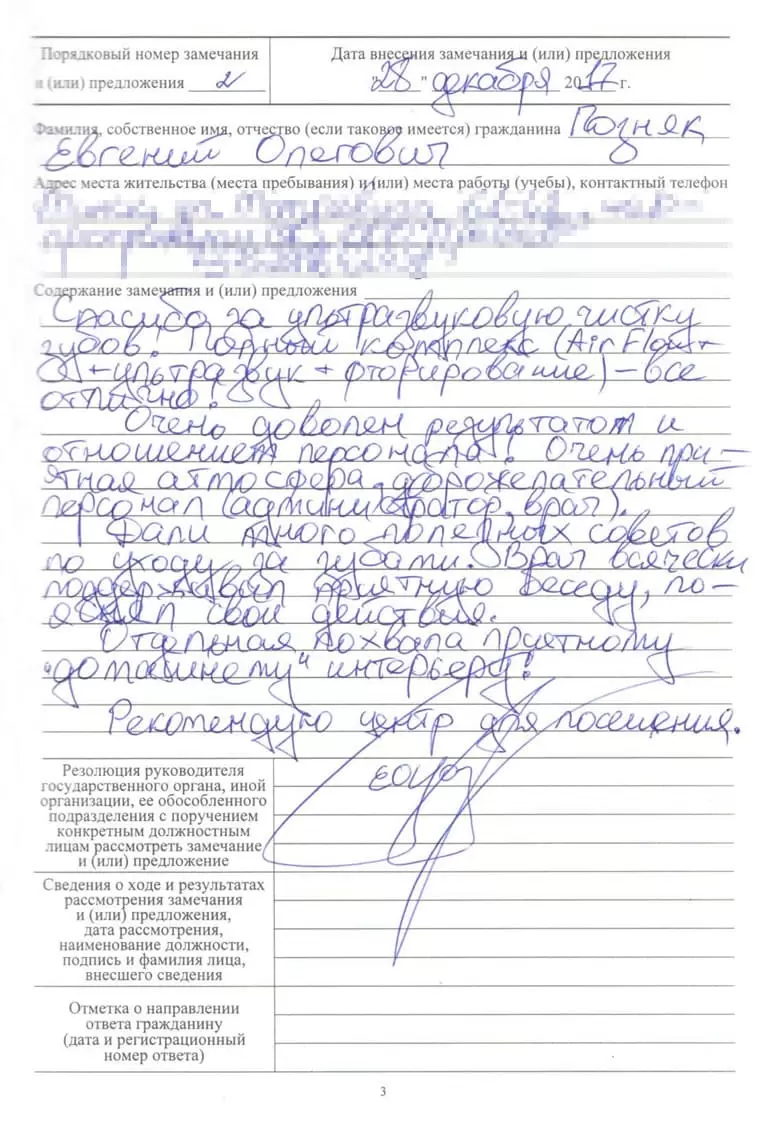 Порядковый номер замечания
и (или) предложения 2
Дата внесения замечания и (или) предложения
"28" декабря 2017 г.
Фамилия, собственное имя, отчество (если таковое имеется) гражданина Позняк
Евгений Олегович
Адрес места жительства (места пребывания) и (или) места работы (учебы), контактный телефон
Содержание замечания и (или) предложения
Спасибо за ультразвуковую чистку
зубов! Полный комплекс (Air Flow+
+ультразвук + фторирование) – все
отлично!
Очень доволен результатом и
отношением персонала! Очень при-
ятная атмосфера, доброжелательный
персонал (администратор, врач).
Дали много полезных советов
по уходу за зубами. Врач всячески
поддерживал приятную беседу, по-
яснял свои действия.
Отдельная похвала приятному
"домашнему" интерьеру!
Рекомендую центр для посещения.
Резолюция руководителя
государственного органа, иной
организации, ее обособленного
подразделения с поручением
конкретным должностным
лицам рассмотреть замечание
и (или) предложение
Сведения о ходе и результатах
рассмотрения замечания
и (или) предложения,
дата рассмотрения,
наименование должности,
подпись и фамилия лица,
внесшего сведения
Отметка о направлении
ответа гражданину
(дата и регистрационный
номер ответа)
3